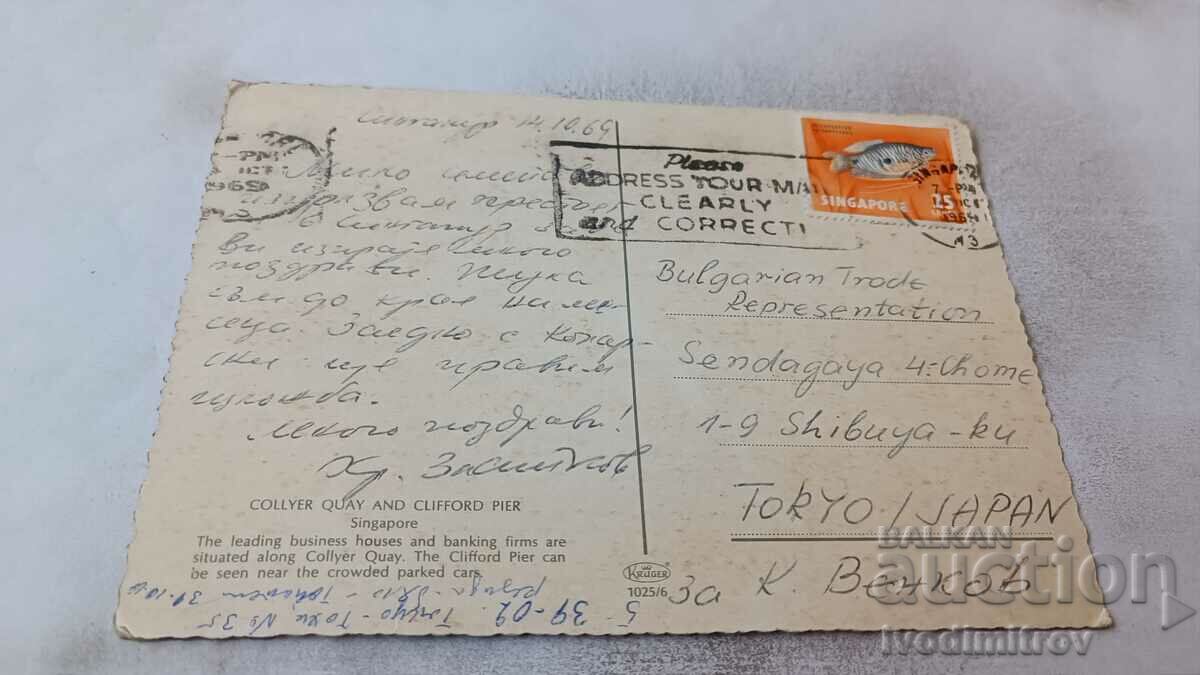 Сингапур 14.10.69
PM
OCT
1969
Please
ADDRESS YOUR MAI
CLEARLY
and CORRECTL
SINGAPORE 15
1969
Мило
използвам престоя
в Сингапур за да
Ви изпратя много
поздрави. Тука
съм до края на ме-
сеца. Заедно с
ски ще правим
изложба.
Много поздрави!
Хр.
Bulgarian Trade
Representation
Sendagaya 4-Chome
1-9 Shibuya-ku
TOKYO / JAPAN
За К. Венков
COLLYER QUAY AND CLIFFORD PIER
Singapore
The leading business houses and banking firms are
situated along Collyer Quay. The Clifford Pier can
be seen near the crowded parked cars.
KRÜGER
1025/6
5 39-02 Токио - No 35
BALKAN
auction
ivodimitrov